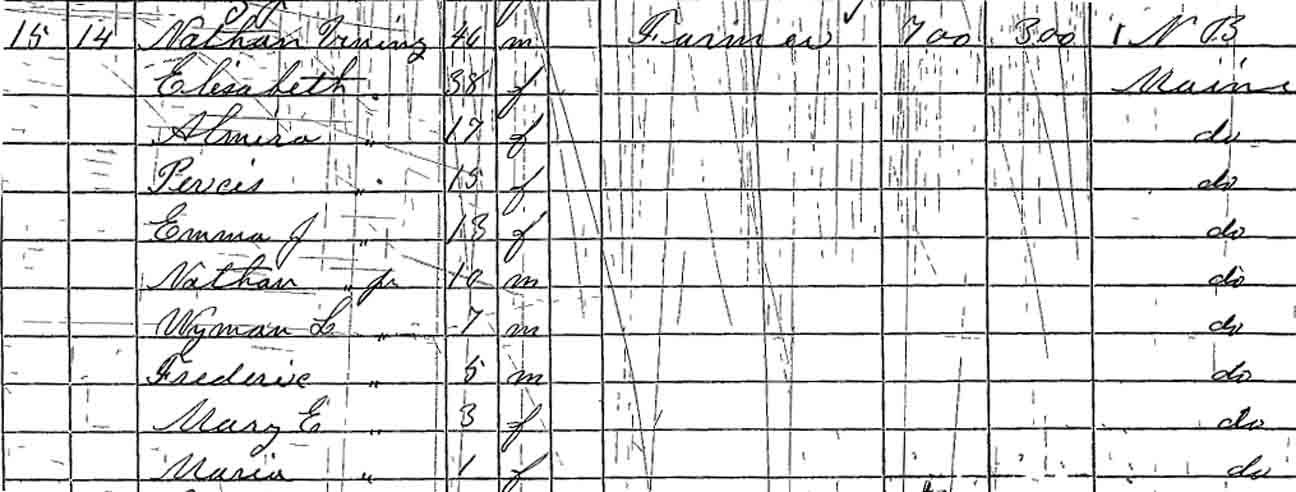 15 14 Nathan Vining 46 m Farmer 700 300 N B
Elisabeth " 38 f Maine
Almira " 17 f do
Percis " 15 f do
Emma J " 13 f do
Nathan " jr 10 m do
Wyman L " 7 m do
Frederic " 5 m do
Mary E " 3 f do
Maria " 1 f do